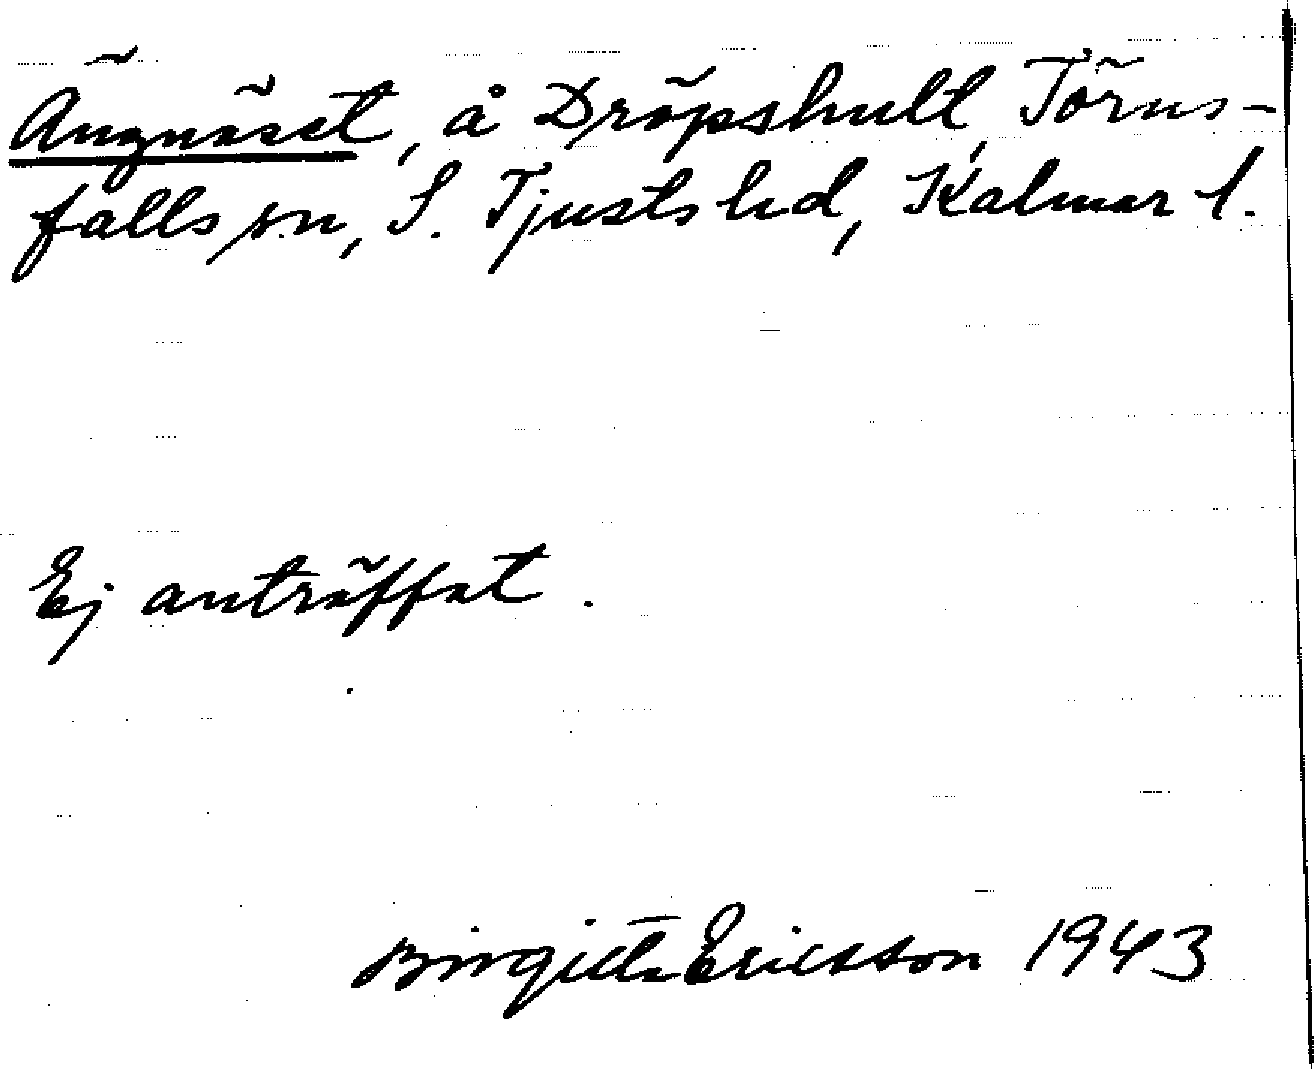 Ängnäset, å Dröpshult, Törns-
falls sn, S. Tjusts hd, Kalmar l.
Ej anträffat.
Birgitta Ericsson 1943